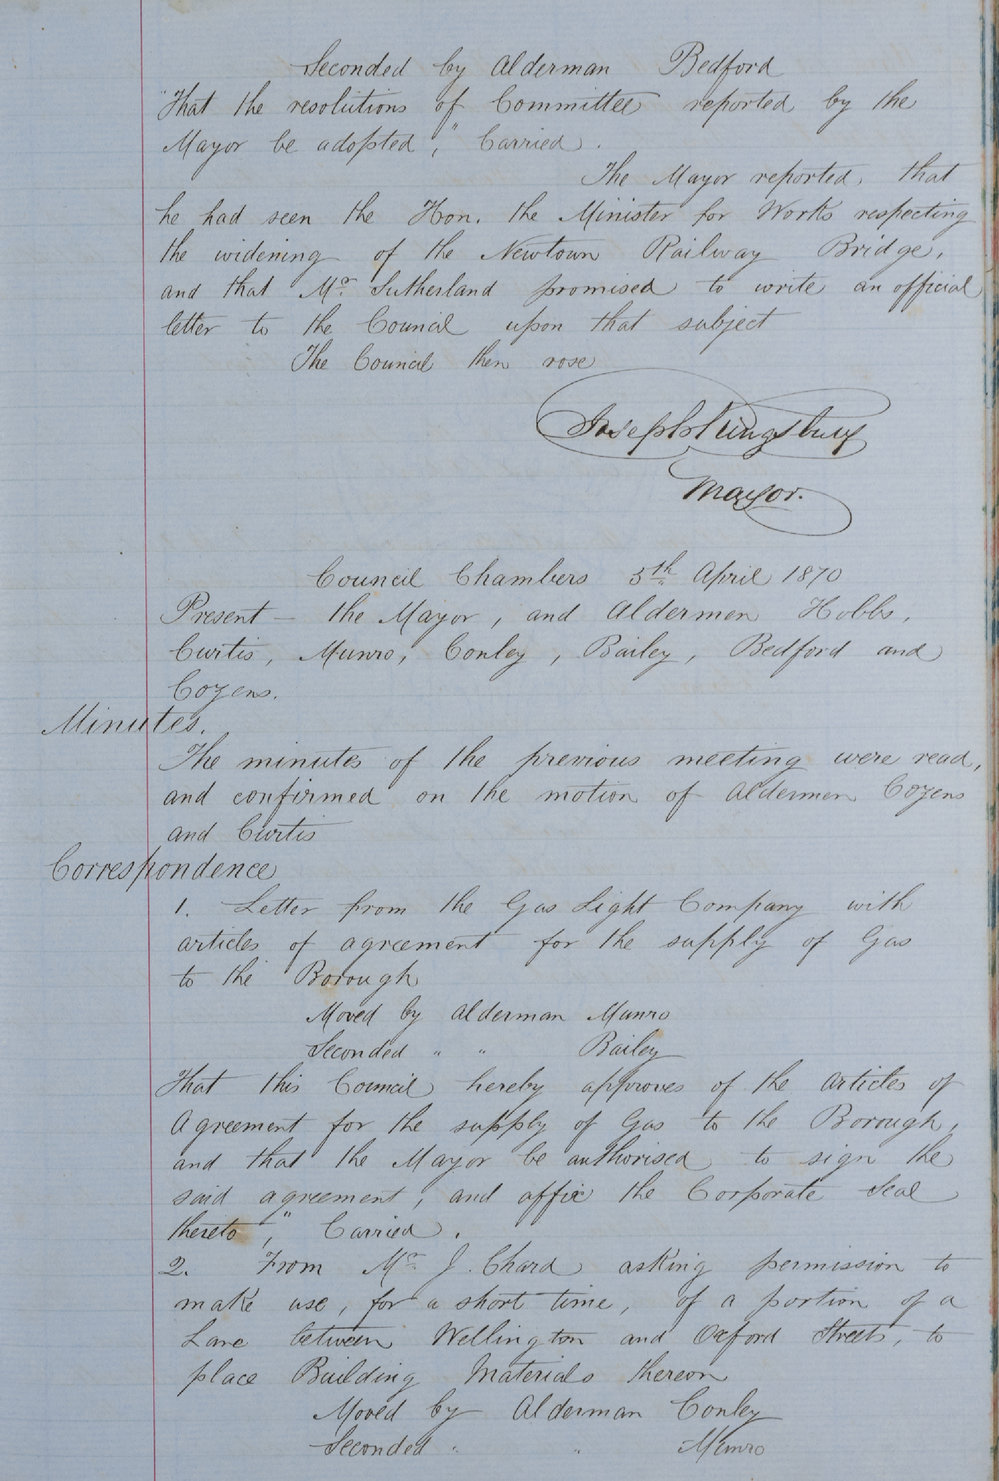 Seconded by Alderman Bedford
"That the resolutions of Committee reported by the
Mayor be adopted," Carried.
The Mayor reported, that
he had seen the Hon. the Minister for Works respecting
the widening of the Newtown Railway Bridge,
and that Mr. Sutherland promised to write an official
letter to the Council upon that subject
The Council then rose
Joseph Kingsbury
Mayor.
Council Chambers 5th April 1870
Present – the Mayor, and Aldermen Hobbs,
Curtis, Munro, Conley, Bailey, Bedford and
Cozens.
Minutes.
The minutes of the previous meeting were read,
and confirmed on the motion of Aldermen Cozens
and Curtis
Correspondence
1. Letter from the Gas Light Company with
articles of agreement for the supply of Gas
to the Borough
Moved by Alderman Munro
Seconded " " Bailey
That this Council hereby approves of the articles of
Agreement for the supply of Gas to the Borough,
and that the Mayor be authorised to sign the
said agreement, and affix the Corporate Seal
thereto," Carried.
2. From Mr. J. Chard asking permission to
make use, for a short time, of a portion of a
Lane between Wellington and Oxford Streets, to
place Building Materials thereon
Moved by Alderman Conley
Seconded " " Munro